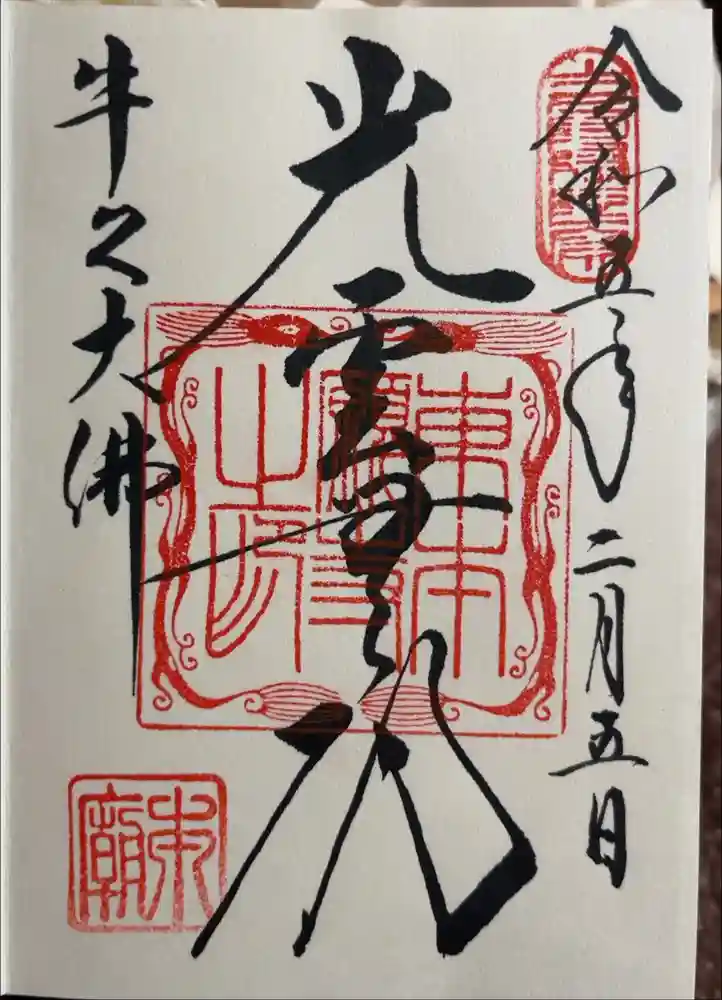 令和五年二月五日
光雲
牛久大佛
東本
願寺
之印
本廟